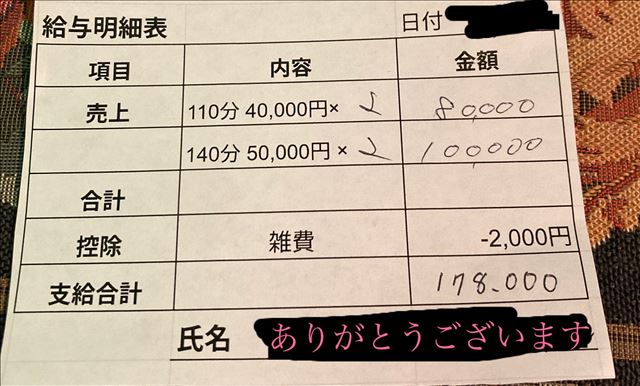 給与明細表 日付
項目 内容 金額
売上 110分 40,000円× 2 80,000
140分 50,000円 × 2 100,000
合計
控除 雑費 -2,000円
支給合計 178.000
氏名 ありがとうございます